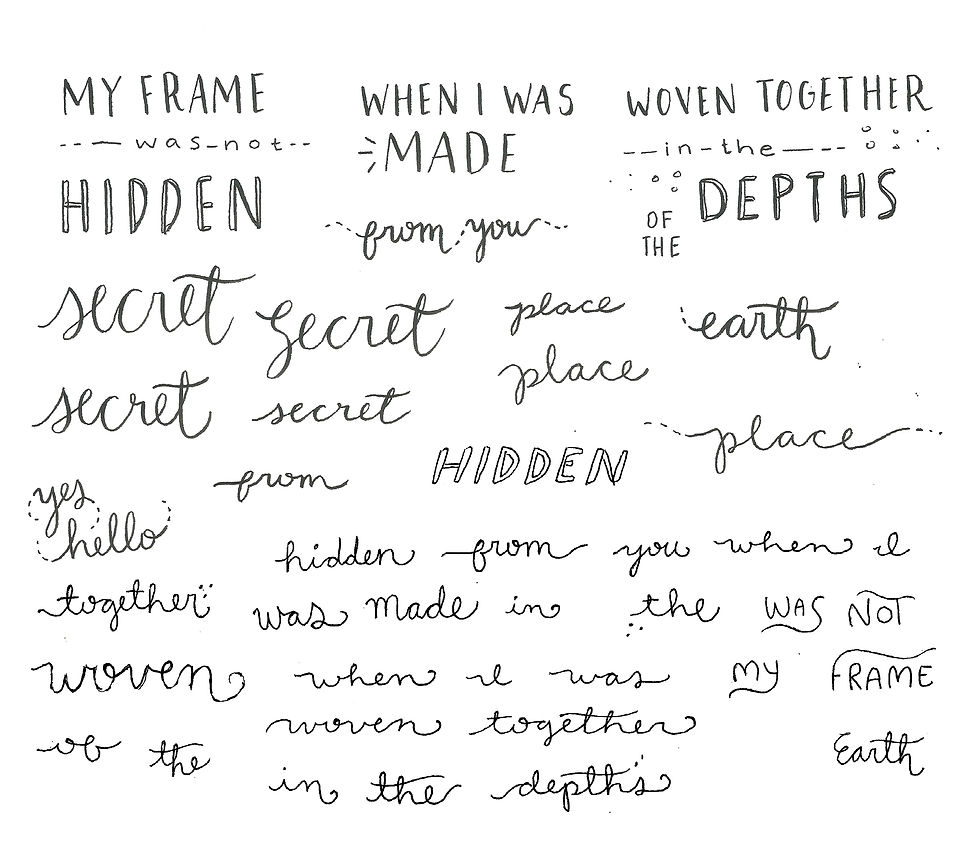 MY FRAME WHEN I WAS WOVEN TOGETHER
was not MADE in the
HIDDEN from you OF THE DEPTHS
secret secret place earth
place
secret secret place
yes from HIDDEN
hello
hidden from you when I
together was made in the WAS NOT
woven when I was MY FRAME
woven together
of the Earth
in the depths